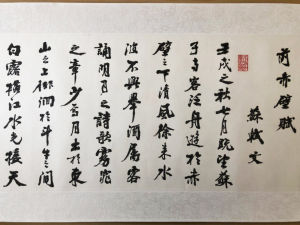 前赤壁賦
蘇軾文
壬戌之秋七月既望蘇
子与客泛舟遊於赤
壁之下清風徐来水
波不興舉酒屬客
誦明月之詩歌窈窕
之章少焉月出於東
山之上徘徊於斗牛之間
白露横江水光接天